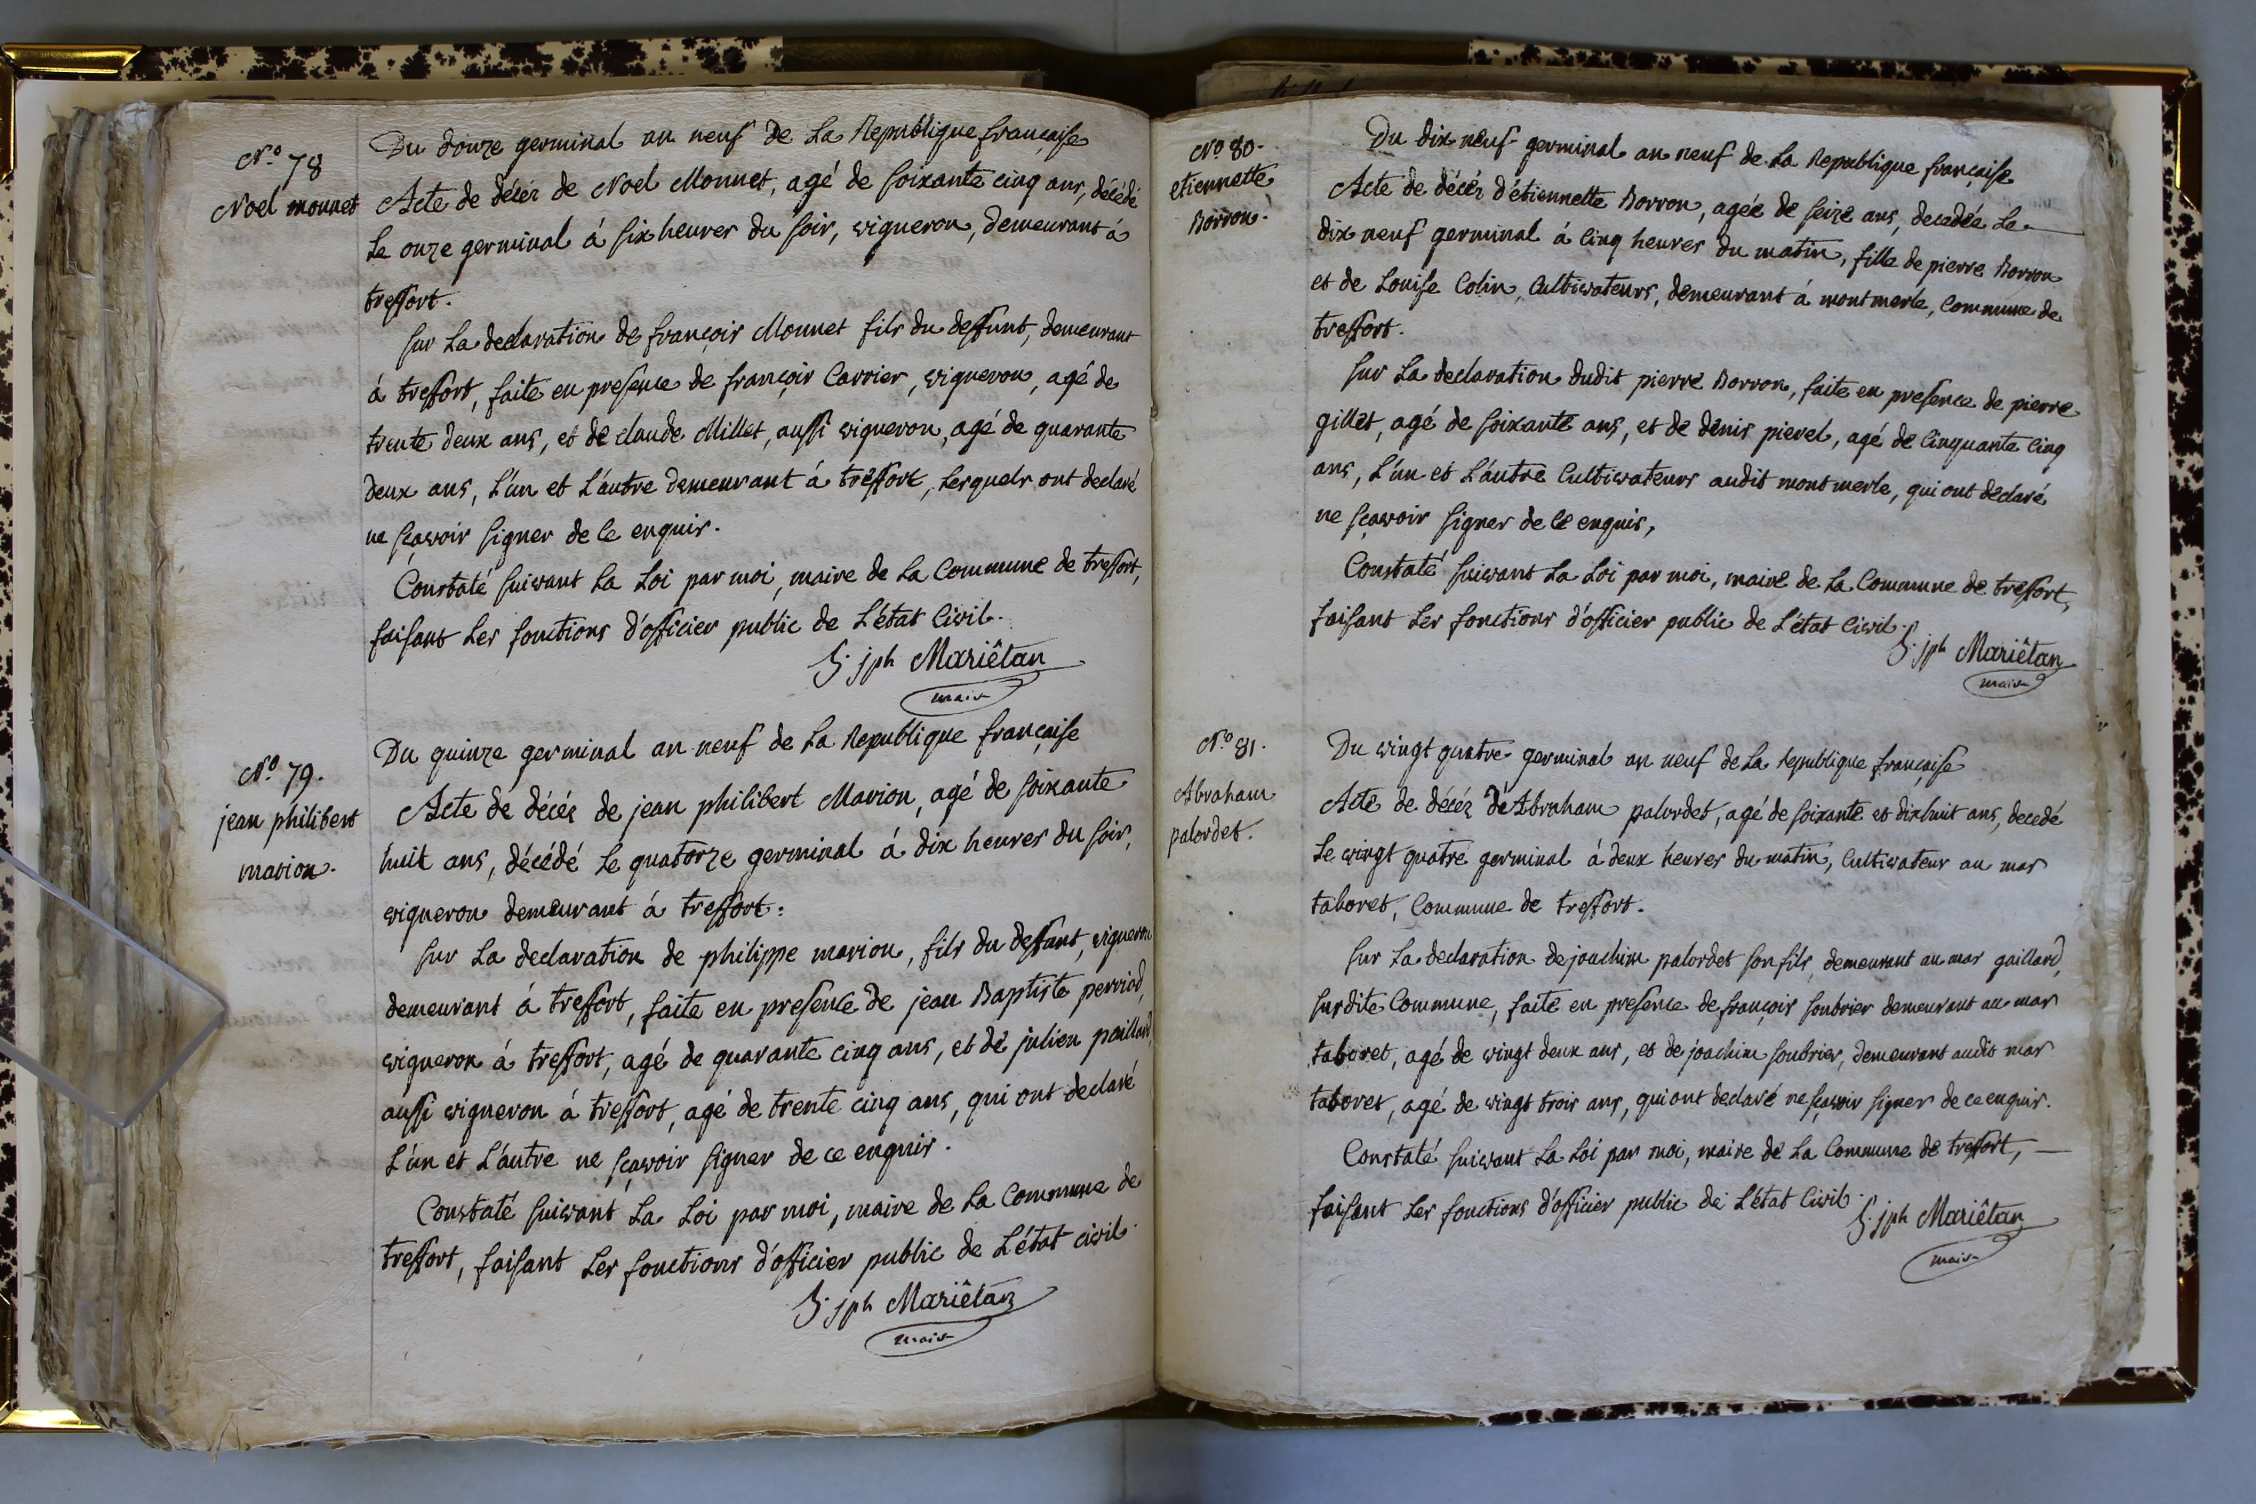 N.o 78
Noel monnet
Du douze germinal an neuf de la Republique française
Acte de décés de Noel Monnet, agé de soixante cinq ans, décédé
le onze germinal á six heures du soir, vigneron, demeurant á
treffort.
sur la declaration de françois Monnet fils du deffunt, demeurant
á treffort, faite en presence de françois Carrier, vigneron, agé de
trente deux ans, et de claude Millet, aussi vigneron, agé de quarante
deux ans, l'un et l'autre demeurant á treffort, lesquels ont declaré
ne sçavoir signer de ce enquis.
Constaté suivant la loi par moi, maire de la Commune de treffort,
faisant les fonctions d'officier public de l'état Civil.
jph Mariêtan
maire
N.o 79.
jean philibert
marion.
Du quinze germinal an neuf de la Republique française
Acte de décés de jean philibert Marion, agé de soixante
huit ans, décédé le quatorze germinal á dix heures du soir,
vigneron demeurant á treffort.
sur la declaration de philippe marion, fils du deffunt, vigneron
demeurant á treffort, faite en presence de jean Baptiste perriod,
vigneron á treffort, agé de quarante cinq ans, et de julien paillard,
aussi vigneron á treffort, agé de trente cinq ans, qui ont declaré
l'un et l'autre ne sçavoir signer de ce enquis.
Constaté suivant la loi par moi, maire de la Commune de
treffort, faisant les fonctions d'officier public de l'état civil.
jph Mariêtan
maire
N.o 80.
etiennette
Borron.
Du dix neuf germinal an neuf de la Republique française
Acte de décés d'étiennette Borron, agée de seize ans, decedée le
dix neuf germinal á cinq heures du matin, fille de pierre Borron
et de Louise Colin, Cultivateurs, demeurant á montmerle, Commune de
treffort.
sur la declaration dudit pierre Borron, faite en presence de pierre
gillet, agé de soixante ans, et de denis pierel, agé de Cinquante Cinq
ans, l'un et l'autre Cultivateurs audit montmerle, qui ont declaré
ne sçavoir signer de ce enquis,
Constaté suivant la loi par moi, maire de la Commune de treffort,
faisant les fonctions d'officier public de l'état Civil.
jph Mariêtan
maire
N.o 81.
Abraham
palordet.
Du vingt quatre germinal an neuf de la Republique française
Acte de décés d'Abraham palordet, agé de soixante et dixhuit ans, decedé
le vingt quatre germinal á deux heures du matin, Cultivateur au mas
taboret, Commune de treffort.
sur la declaration de joachim palordet son fils, demeurant au mas gaillard,
susdite Commune, faite en presence de françois soubrier demeurant au mas
taboret, agé de vingt deux ans, et de joachim soubrier, demeurant audit mas
taboret, agé de vingt trois ans, qui ont declaré ne sçavoir signer de ce enquis.
Constaté suivant la loi par moi, maire de la Commune de treffort,
faisant les fonctions d'officier public de l'état Civil.
jph Mariêtan
maire